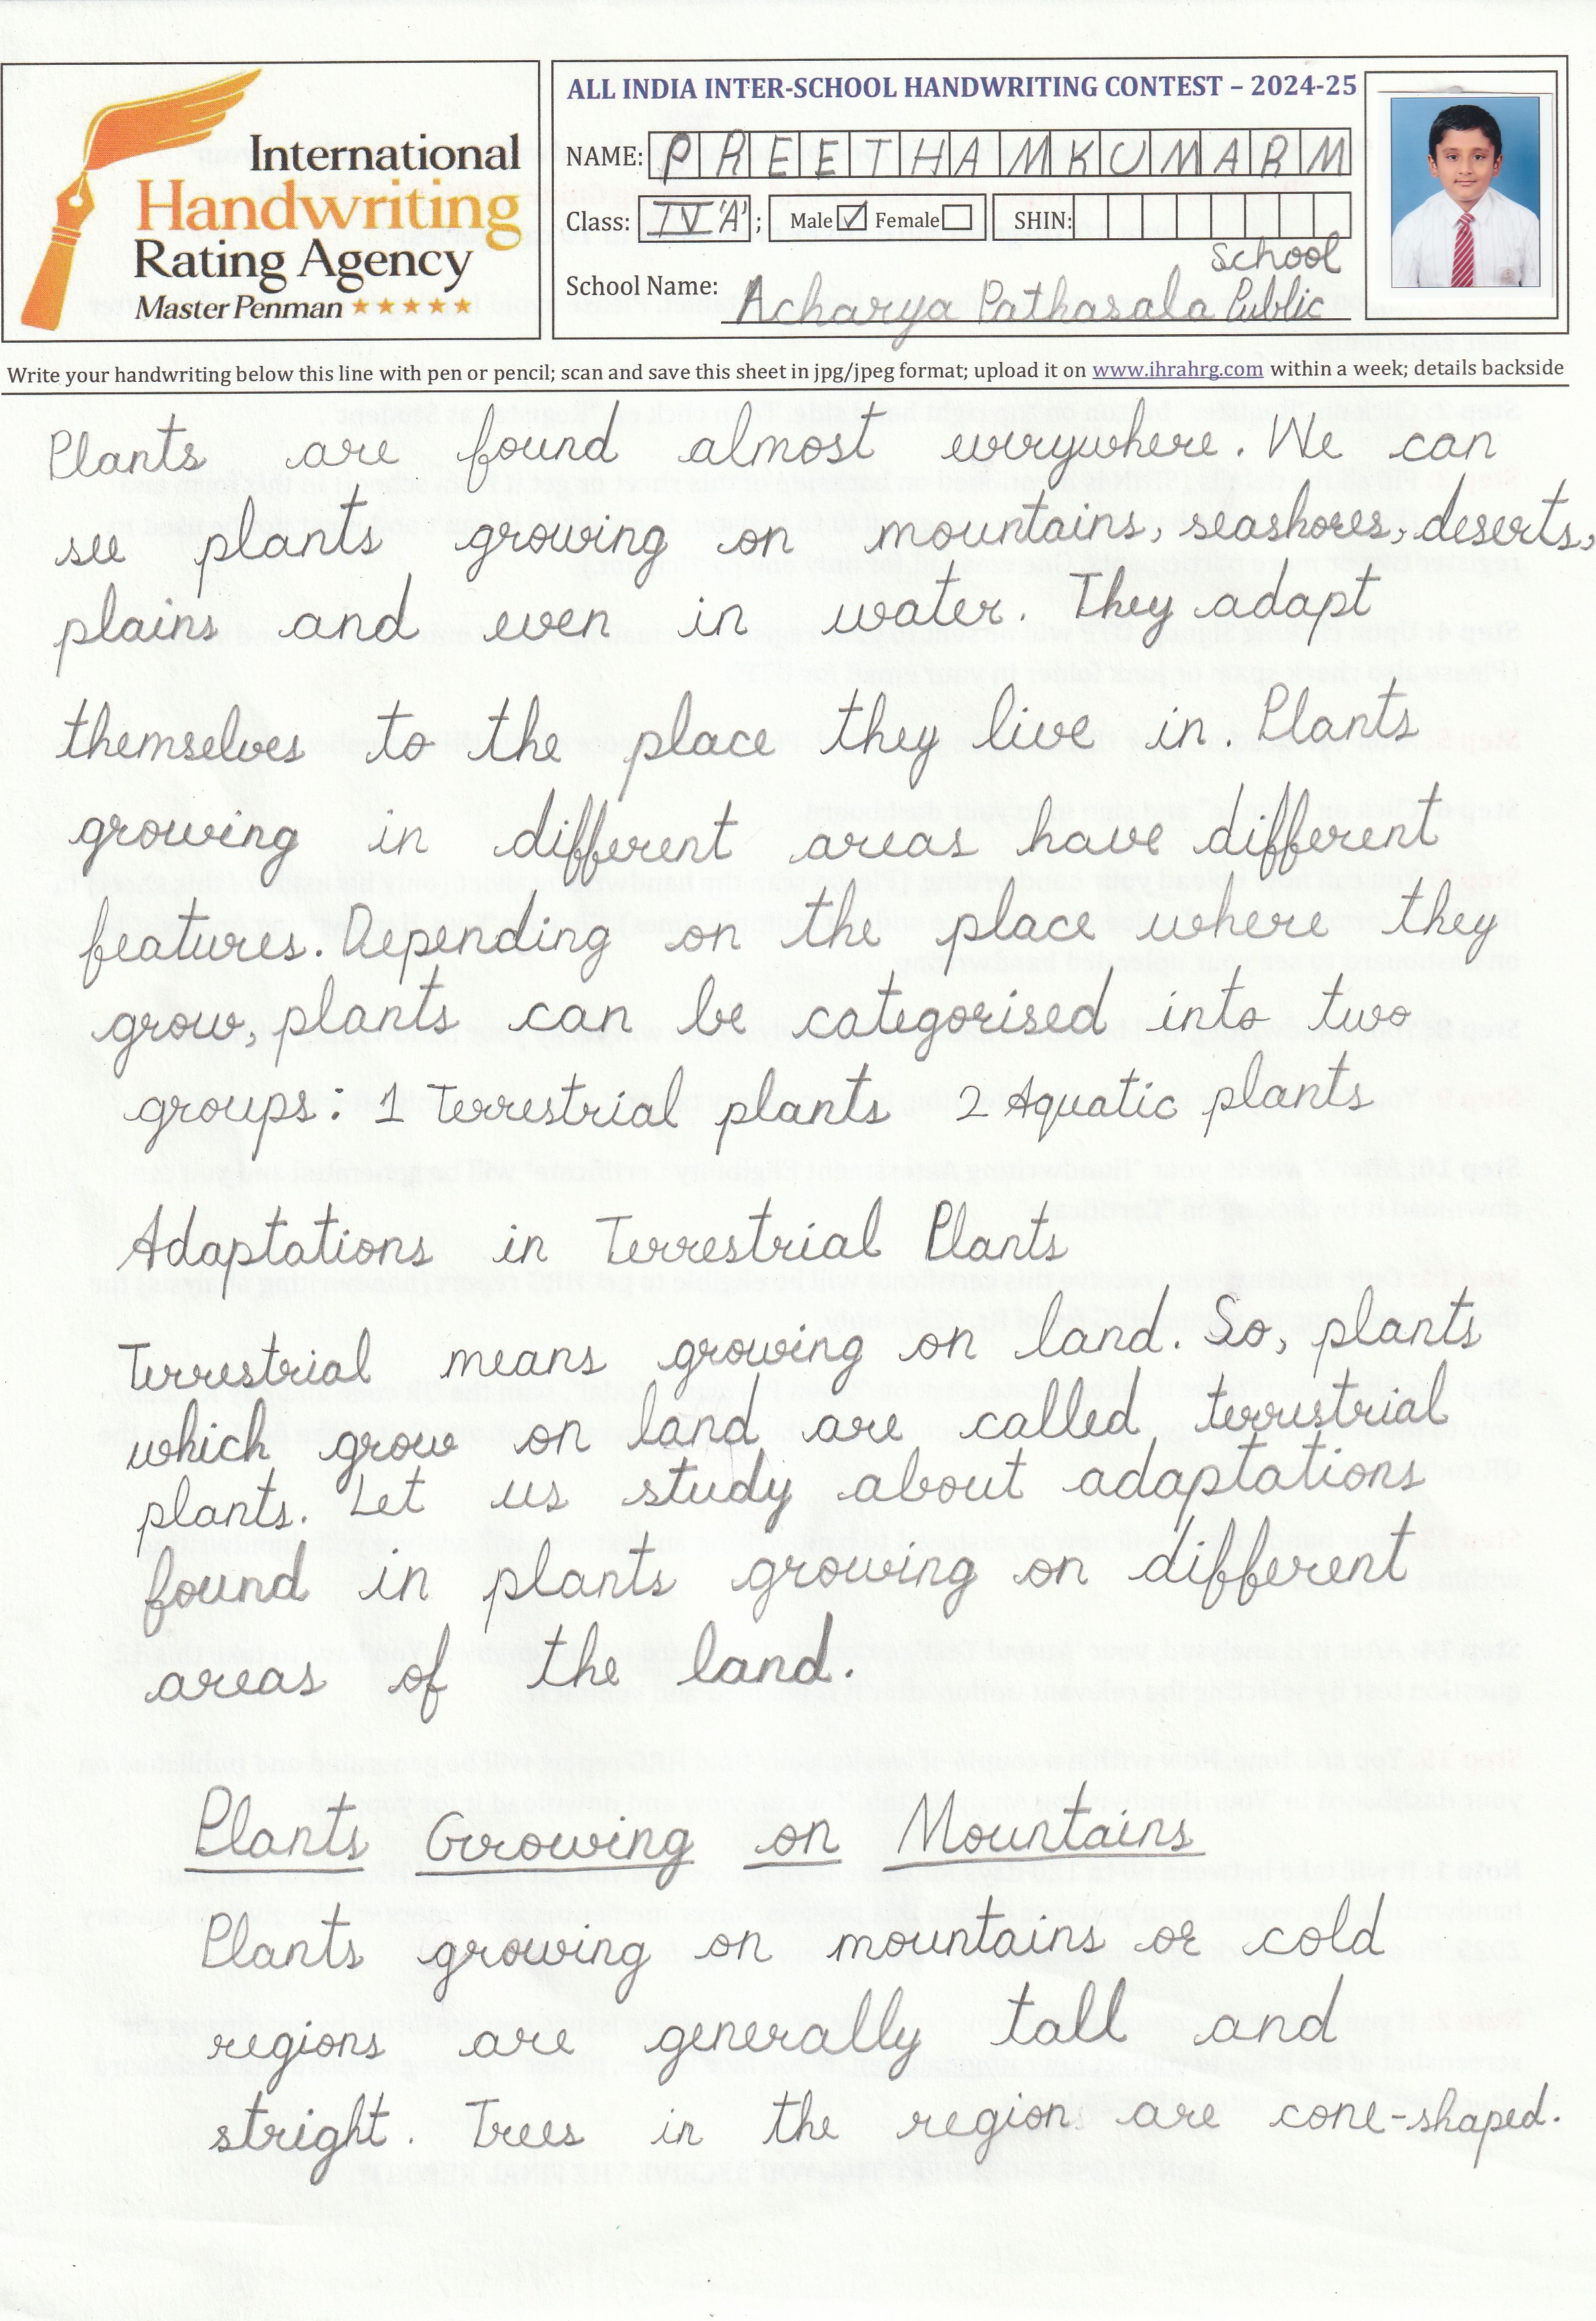 International
Handwriting
Rating Agency
Master Penman
ALL INDIA INTER-SCHOOL HANDWRITING CONTEST – 2024-25
NAME: PREETHAMKUMARM
Class: IV 'A' ; Male ✓ Female SHIN:
School Name: Acharya Pathasala Public school
Write your handwriting below this line with pen or pencil; scan and save this sheet in jpg/jpeg format; upload it on www.ihrahrg.com within a week; details backside
Plants are found almost everywhere. We can
see plants growing on mountains, seashores, deserts,
plains and even in water. They adapt
themselves to the place they live in. Plants
growing in different areas have different
features. Depending on the place where they
grow, plants can be categorised into two
groups: 1 Terrestrial plants 2 Aquatic plants
Adaptations in Terrestrial Plants
Terrestrial means growing on land. So, plants
which grow on land are called terrustrial
plants. Let us study about adaptations
found in plants growing on different
areas of the land.
Plants Growing on Mountains
Plants growing on mountains or cold
regions are generally tall and
stright. Trees in the region are cone-shaped.